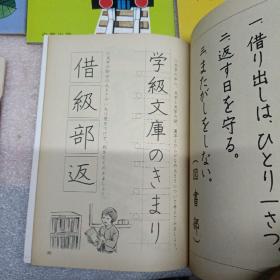 一、借り出しは、ひとり一さつ。
二、返す日を守る。
三、またがしをしない。
（図書部）
学級文庫のきまり
借級部返